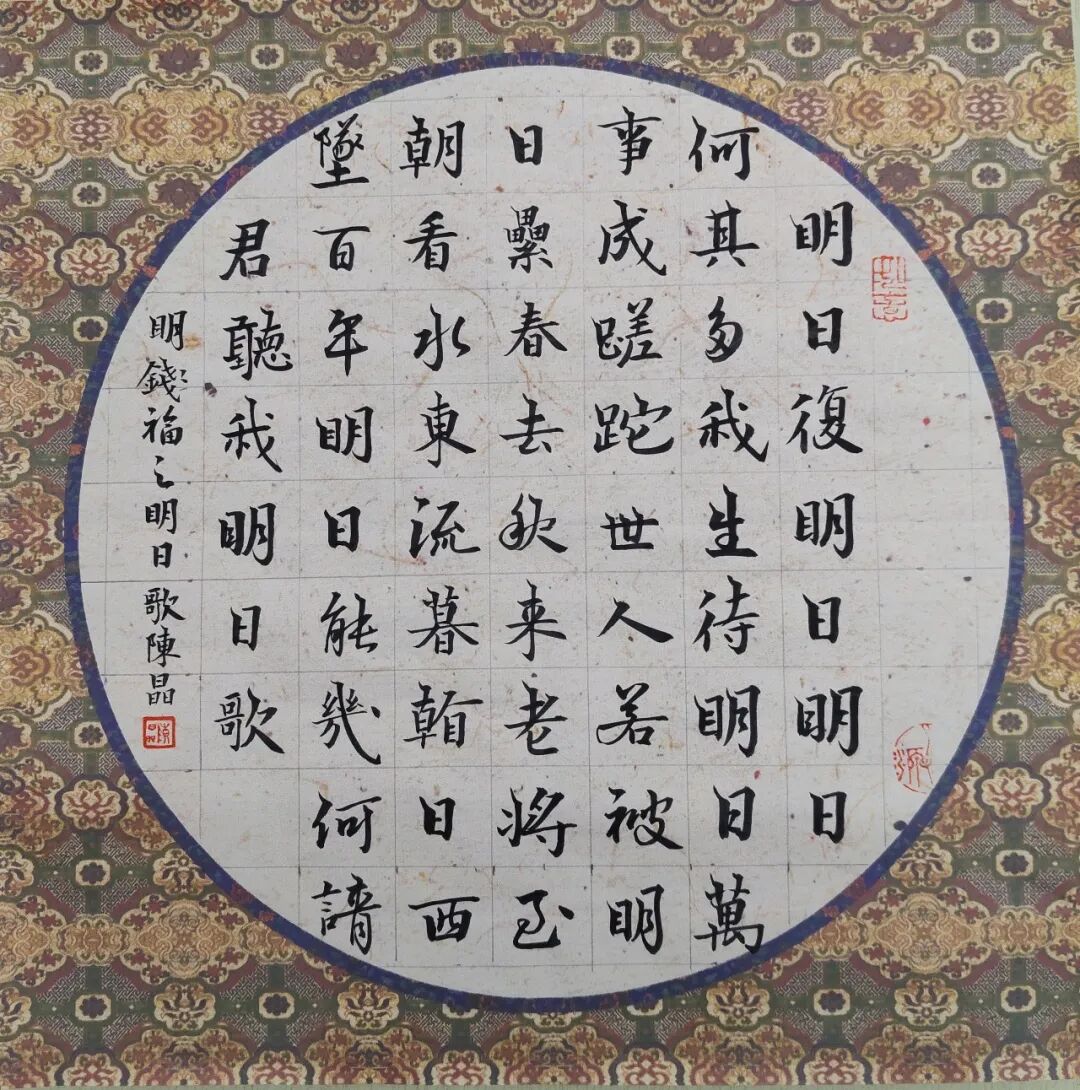 明日復明日明日
何其多我生待明日萬
事成蹉跎世人若被明
日纍春去秋来老將至
朝看水東流暮看日西
墜百年明日能幾何請
君聽我明日歌
明錢福之明日歌陳晶